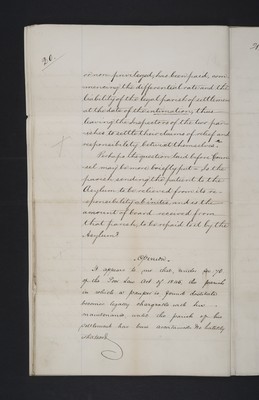 20
or non-privileged, has been paid, com-
mencing the differential rate and the
liability of the legal parish of settlement
at the date of the intimation, thus
leaving the Inspectors of the two par-
ishes to settle their claims of relief and
responsibility between themselves.
Perhaps the question laid before Coun-
sel may be more briefly put: Is the
parish sending the patient to the
Asylum to be relieved from its re-
sponsibility, and as the
amount of board received from
that parish, to be repaid to it by the
Asylum?
Opinion.
It appears to me that, under § 70
of the Poor Law Act of 1845 the parish
in which a pauper is found destitute
becomes legally chargeable with his
maintenance until the parish of his
settlement has been ascertained. Its liability